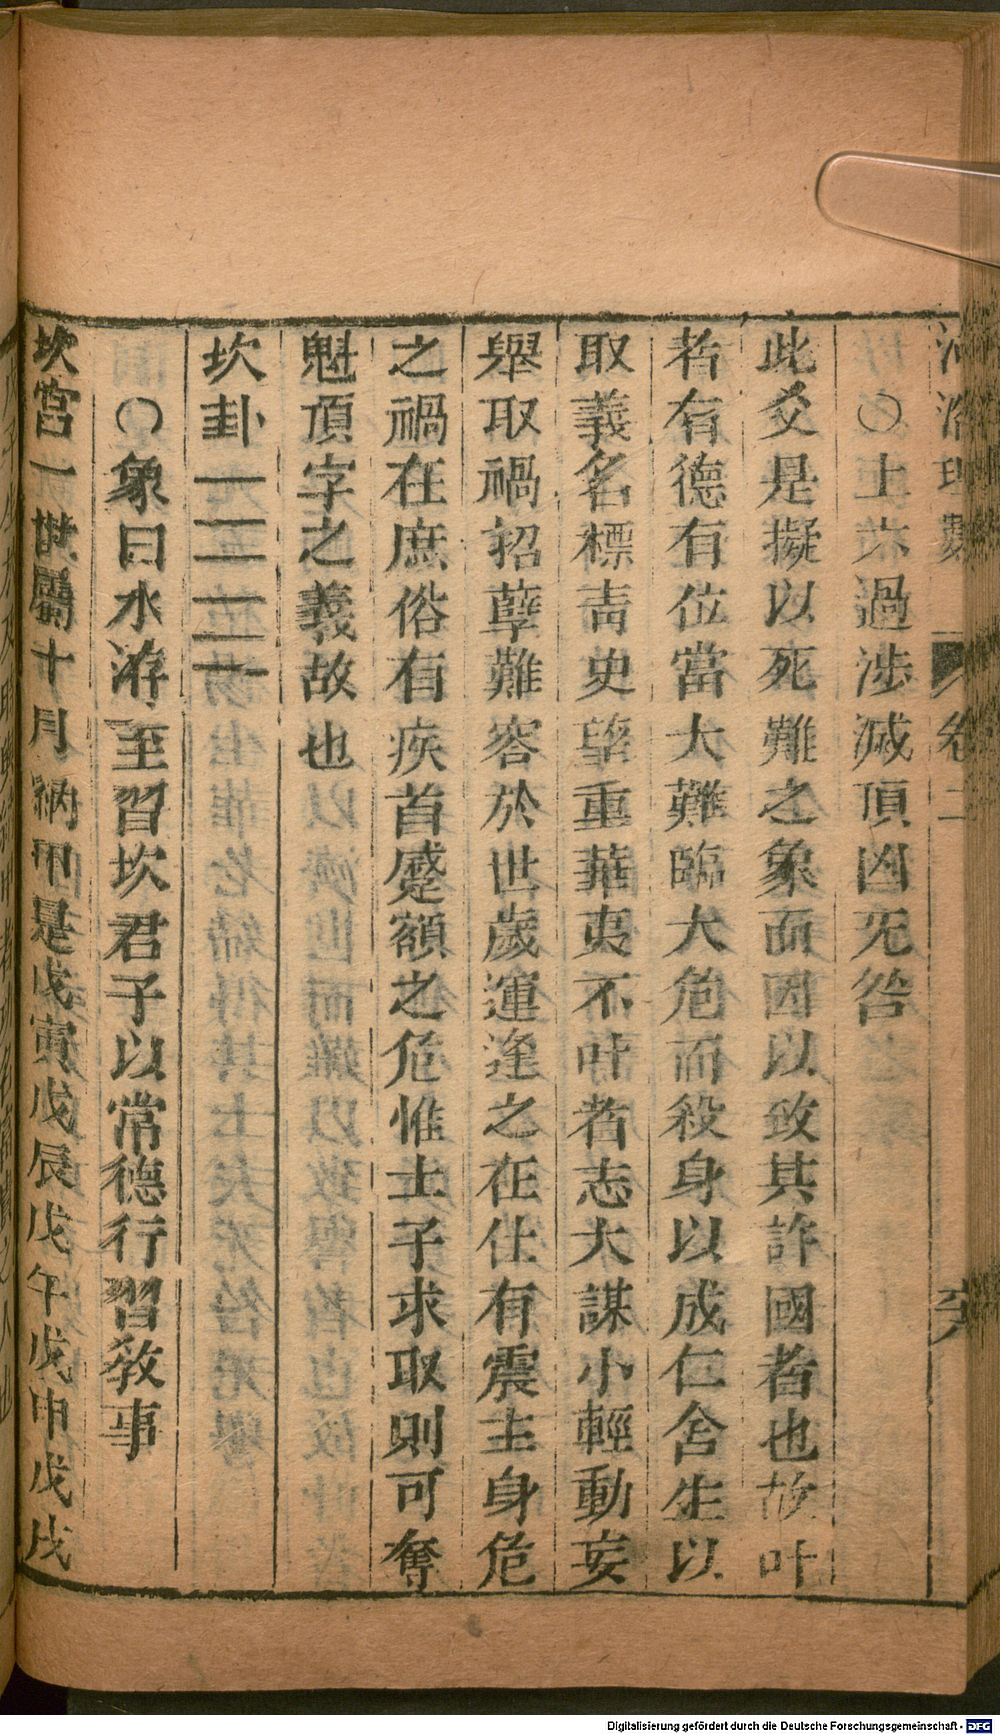 河洛理數 卷二
○上六過涉滅頂凶无咎
此爻是擬以死難之象而因以致其許國者也故叶
者有德有位當大難臨大危而殺身以成仁舍生以
取義名標青史望重華夷不叶者志大謀小輕動妄
舉取禍招孽難容於世歲運逢之在仕有震主身危
之禍在庶俗有疾首蹙額之危惟士子求取則可奪
魁頂字之義故也
坎卦
○象曰水洊至習坎君子以常德行習敎事
坎宮一世屬十月納甲是戊寅戊辰戊午戊申戊戌
Digitalisierung gefördert durch die Deutsche Forschungsgemeinschaft - DFG